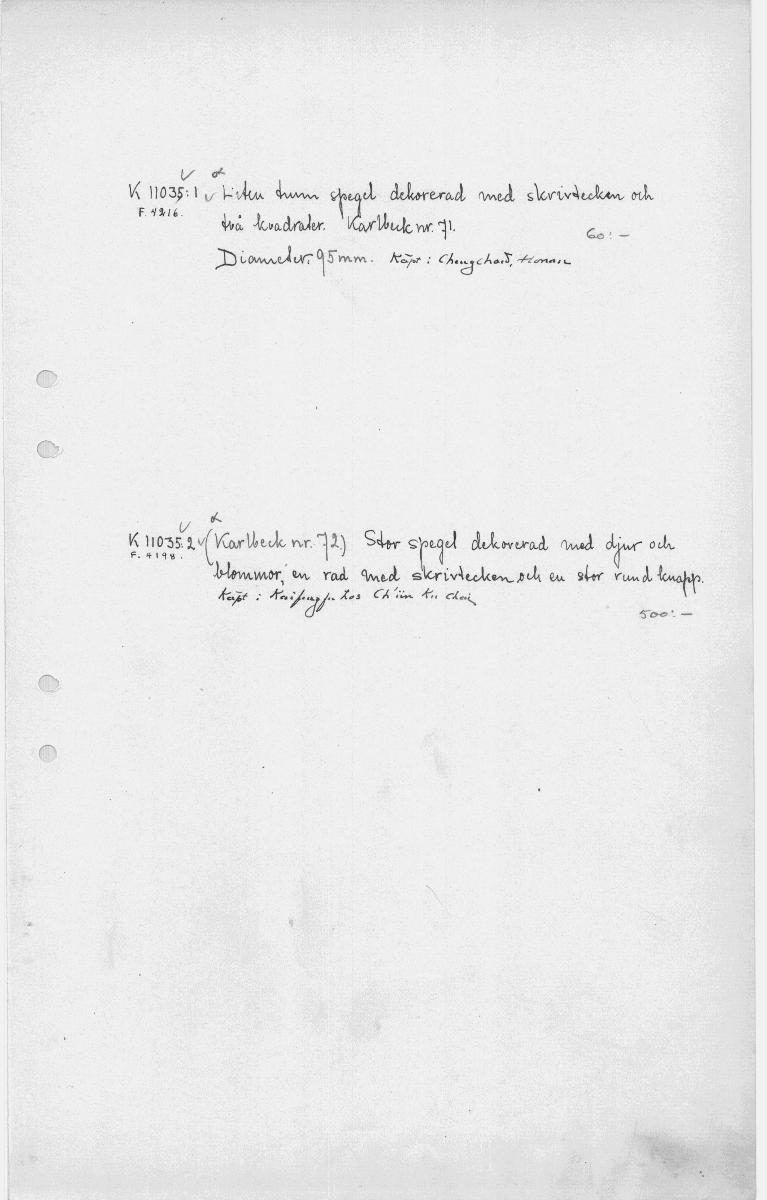 K 11035:1 Liten tunn spegel dekorerad med skrivtecken och
F. 4216.
två kvadrater. Karlbeck nr. 71.
60:-
Diameter: 95 mm. Köpt: Chengchow, Honan
K 11035:2 (Karlbeck nr. 72) Stor spegel dekorerad med djur och
F. 4198.
blommor, en rad med skrivtecken och en stor rund knapp.
Köpt: Kaifengfu Ch'ün Ku Chai
500:-